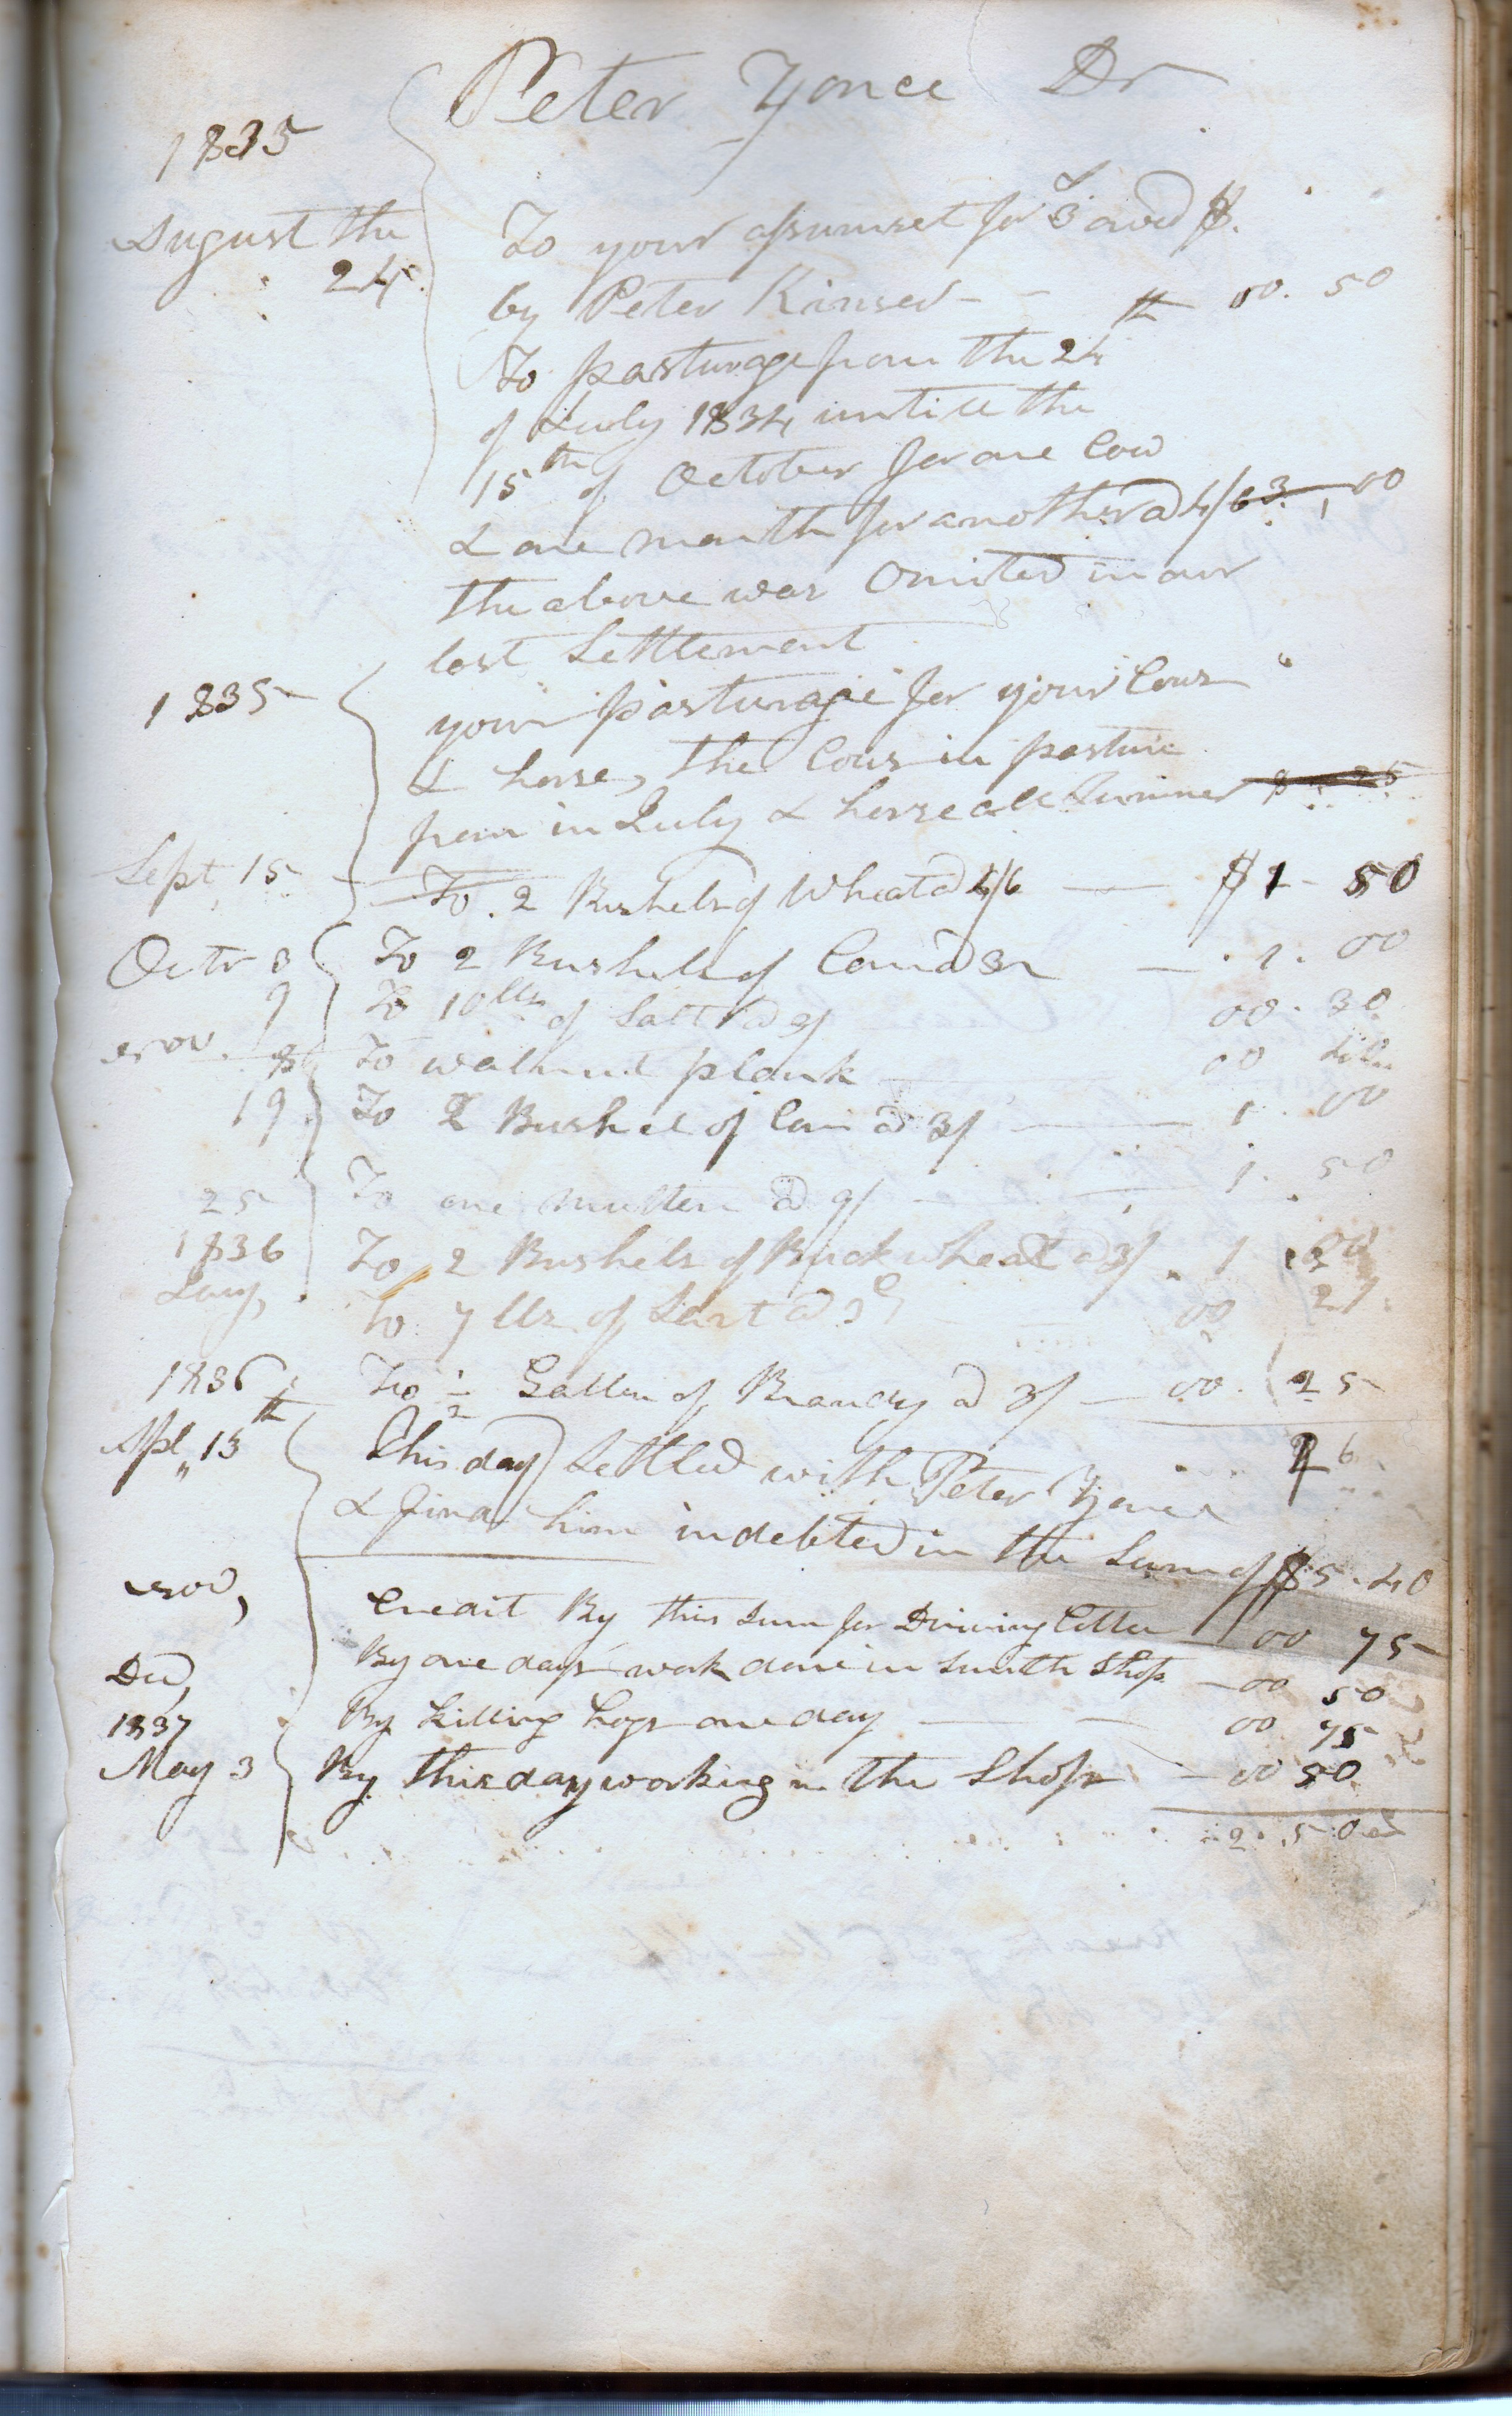 Peter Yonce Dr
1835
August the 24
To your assumset for 3 owed $.
by Peter Kinser - - 00. 50
To pasturage from the 24
of July 1834 untill the
15th of October for one Cow
& one month for another @ 4/6 3. 00
the above was Omited in our
last Settlement
1835
your pasturage for your Cows
& horse, the Cows in pasture
from in July & horse all Summer
Sept 15 To 2 Bushels of Wheat @ 4/6 $1 - 50
Octr 3 To 2 Bushels of Corn @ 3/ 1. 00
9 To 10 lbs of Salt @ 00. 30
Nov. 8 To walnut plank 00
19 To 2 Bushel of Corn @ 3/ 1 00
25 To one mutten @ 9/ 1. 50
1836 Jany, To 2 Bushels of Buckwheat @ 3/ 1 00
To 7 lbs of Salt @ 3c 00 21
1836 To 1/2 Gallon of Brandy @ 3/ 00. 25
Apl 13 This day Settled with Peter Yonce
& find him indebted in the Sum of $5. 40
Nov, Credit By this Sum for Driving Cattle 00 75
By one days work done in Smith Shop 00 50
Dec, By Killing hogs one day 00 75
1837
May 3 By this day working in the Shop 00 50
2. 50